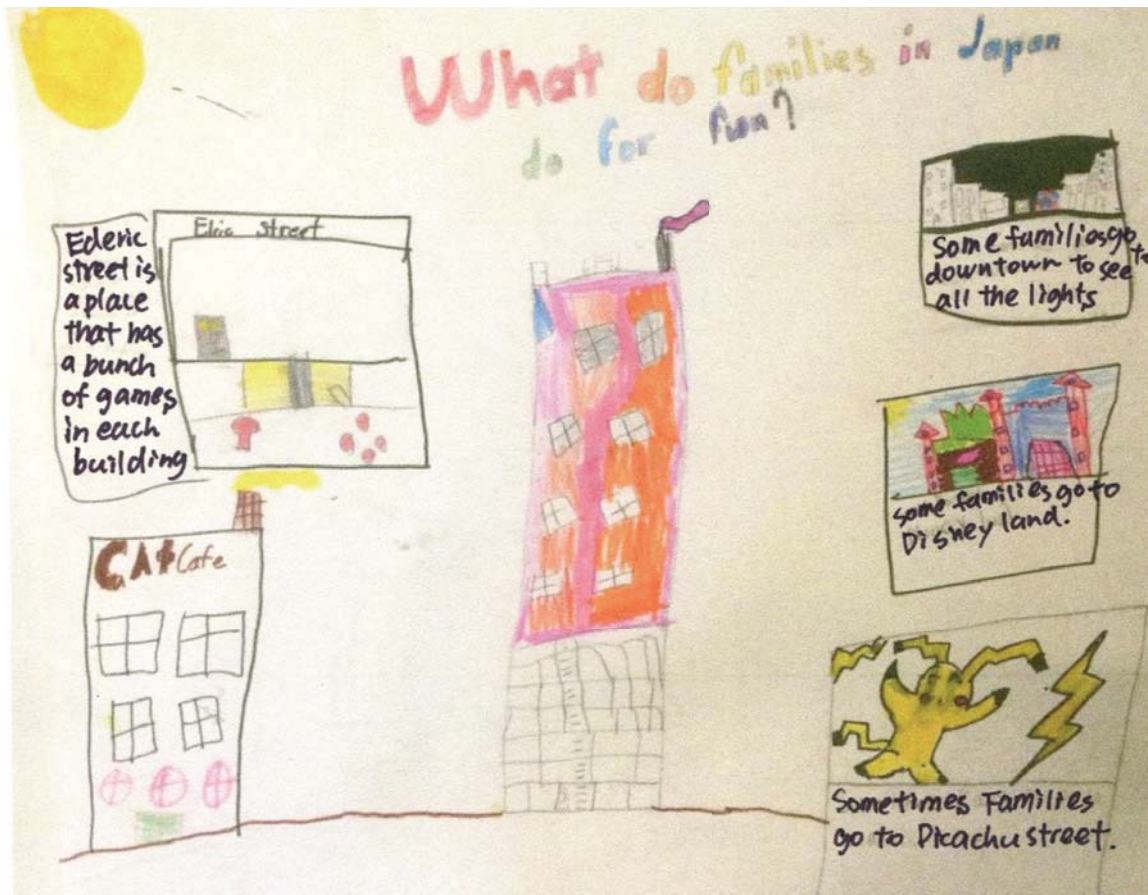 What do families in Japan
do for fun?
Ederic
street is
a place
that has
a bunch
of games
in each
building
Elric street
CAt Cafe
Some families go to
downtown to see
all the lights
some families go to
Disney land.
Sometimes Families
go to Picachu street.